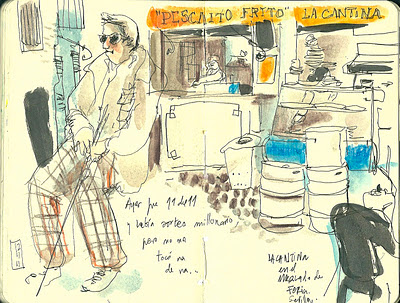 "PESCAITO FRITO"
LA CANTINA
Ayer fue 11 del 11
y había sorteo millonario
pero no me
tocó na
de na...
LA CANTINA
en el
MERCADO de
FERIA.
Sevilla